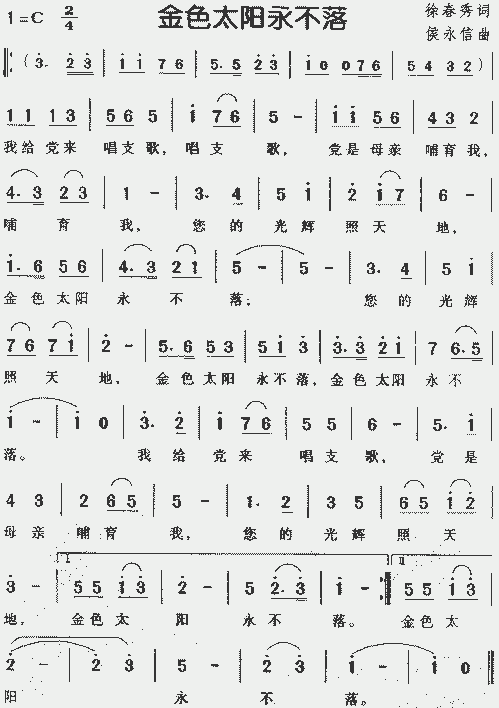 金色太阳永不落
1=C 2/4
徐春秀词
侯永信曲
(3. 2 3 | 1 1 7 6 | 5. 5 2 3 | 1 0 0 7 6 | 5 4 3 2)
1 1 1 3 | 5 6 5 | i 7 6 | 5 - | i i 5 6 | 4 3 2
我给党来 唱支歌，唱支 歌， 党是母亲 哺育我，
4. 3 2 3 | 1 - | 3. 4 | 5 i | 2 i 7 | 6 -
哺 育 我， 您的 光辉 照天 地，
i. 6 5 6 | 4. 3 2 1 | 5 - | 5 - | 3. 4 | 5 i
金色太阳 永 不 落； 您的 光辉
7 6 7 i | 2 - | 5. 6 5 3 | 5 i 3 | 3. 3 2 i | 7 6. 5
照 天 地， 金色太阳 永不落，金色太阳 永 不
i - | i 0 | 3. 2 | i 7 6 | 5 5 | 6 - | 5. i
落。 我给 党来 唱支 歌， 党是
4 3 | 2 6 5 | 5 - | 1. 2 | 3 5 | 6 5 i 2
母亲 哺育 我， 您的 光辉 照 天
3 - | 1. 5 5 i 3 | 2 - | 5 2. 3 | i - :| II 5 5 i 3
地， 金色太 阳 永不 落。 金色太
2 - | 2 3 | 5 - | 2 3 | i - | i 0
阳 永 不 落。